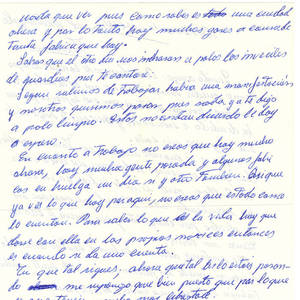 nosta que ver pues como sabes es una ciudad
obrera y por lo tanto hay muchos gases a causa de
tanta fabrica que hay.
Sabras que el año de
de guardias pus te
Segun salimos de trabajar habia una manifestación
y nosotros quisimos pasar pues nada ya te digo
a palo limpio. Estos no
o espero.
En cuanto a trabajo no creas que hay mucho
ahora, hay mucha gente parada y algunas fabri
cas en huelga un dia si y otro tambien. Asi que
ya ves lo que hay por aqui, no creas que es todo como
lo cuentan. Para saber lo que es la vida hay que
darse con ella en las propias narices entonces
es cuando si da uno cuenta.
En que tal sigues, ahora que tal bilo estais pasan-
do me supongo que bien puesto que por lo que
libertad